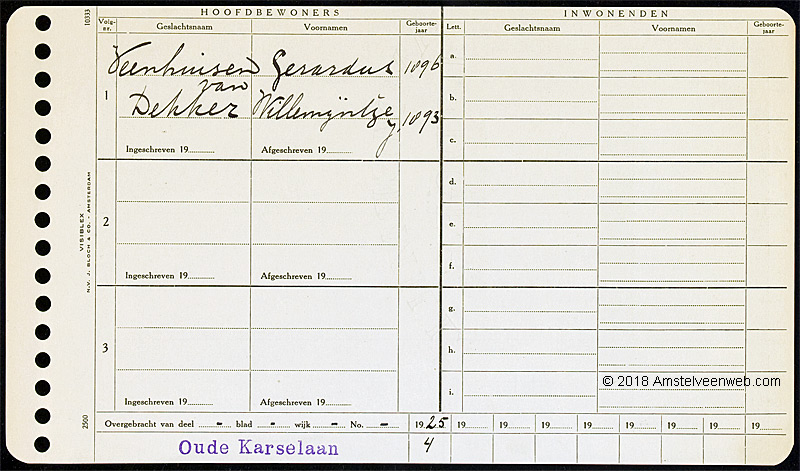 HOOFDBEWONERS
INWONENDEN
10333
Volg-nr.
Geslachtsnaam
Voornamen
Geboorte-jaar
Lett.
Geslachtsnaam
Voornamen
Geboorte-jaar
1
Veenhuisen Gerardus 1896
van
Dekker Willemijntje 1893
J.
Ingeschreven 19.......... Afgeschreven 19..........
2
Ingeschreven 19.......... Afgeschreven 19..........
3
Ingeschreven 19.......... Afgeschreven 19..........
a.
b.
c.
d.
e.
f.
g.
h.
i.
VISIBLEX
N.V. J. BLOCH & CO. - AMSTERDAM
2500
© 2018 Amstelveenweb.com
Overgebracht van deel - blad - wijk - No. - 1925 19 19 19 19 19 19 19 19
Oude Karselaan 4